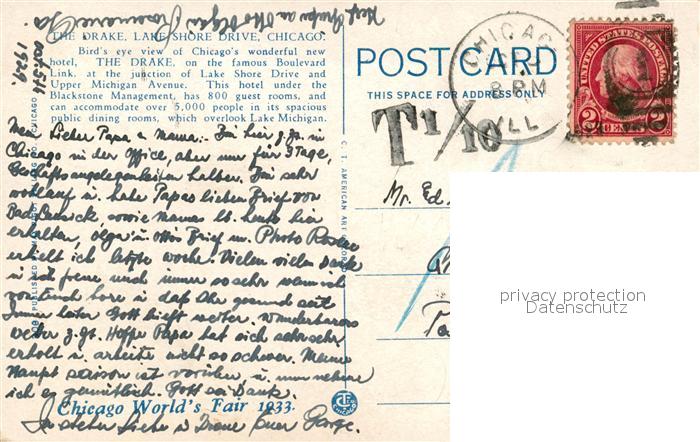 THE DRAKE, LAKE SHORE DRIVE, CHICAGO.
Bird's eye view of Chicago's wonderful new
hotel, THE DRAKE, on the famous Boulevard
Link, at the junction of Lake Shore Drive and
Upper Michigan Avenue. This hotel under the
Blackstone Management, has 800 guest rooms, and
can accommodate over 5,000 people in its spacious
public dining rooms, which overlook Lake Michigan.
Lieber Papa u Mama:- Bin hier z.Zt. in
Chicago in der Office, aber nur für 3 Tage,
Geschäftsangelegenheiten halber. Bin sehr
wohlauf u. habe Papas lieben Brief von
sowie Mamas lb. heute hier
erhalten, Olga u Ottos Brief u. Photo
erhielt ich letzte Woche. Vielen vielen Dank
u ich freue mich immer so sehr wenn ich
von Euch höre u daß Ihr gesund seit
Immer
Wetter z.Zt. Hoffe Papa hat sich sehr sehr
erholt u. arbeite nicht so schwer. Meine
Haupt saison ist vorüber u. nun nehme
ich es gemütlich. Gott sei Dank.
Chicago World's Fair 1933
In steter Liebe u Treue Euer George.
POST CARD
THIS SPACE FOR ADDRESS ONLY
CHICAGO
8 PM
ILL
UNITED STATES POSTAGE
2 CENTS 2
T 1/10
C. T. AMERICAN ART
Mr. Ed.
privacy protection
Datenschutz